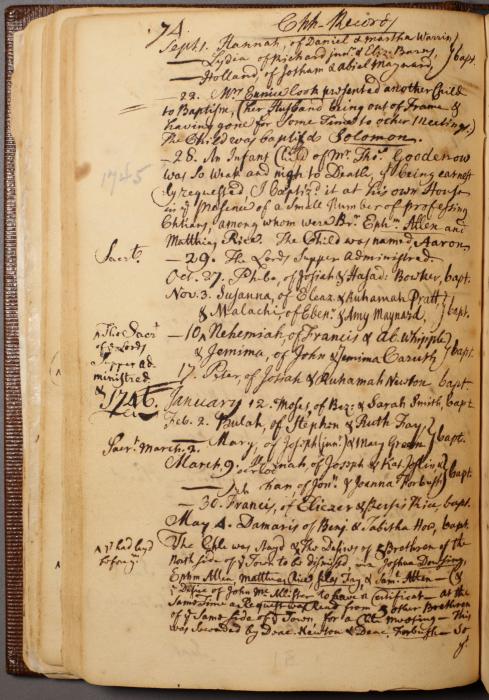 74 Chh. Record
Sept. 1. Hannah, of Daniel & Martha Warrin
— Lydia of Richard junr. & Eliz: Barns, } bapt.
— Holland, of Jotham & Abiel Maynard,
— 22. Mrs. Eunice Cook presented another Child
to Baptism, (her Husband being out of Frame &
having gone for some Time to other Meetings,)
The Child was baptis'd Solomon.
1745
— 28. An Infant Child of Mr. Thos. Goodenow
was so weak and nigh to Death, yt being earnest-
ly requested, I baptiz'd it at his own House
in ye presence of a small Number of professing
Chtians, among whom were Br. Ephm. Allen and
Matthias Rice. The Child was named Aaron.
Sacrt. — 29. The Lords Supper Administred.
Oct. 27. Phebe, of Josiah & Bowker, bapt.
Nov. 3. Susanna, of Eleaz. & Ruhamah Pratt } bapt.
& Malachi, of Ebenr. & Amy Maynard,
— 10 ^ Nehemiah, of Francis & Whipple } bapt.
& Jemima, of John & Jemima Caruth
^ This Sacr
of ye Lords
Supper ad-
ministred
17. Peter, of Josiah & Ruhamah Newton bapt.
& 1746. January 12. Moses, of Bez: & Sarah Smith, bapt.
Feb. 2. Bulah, of Stephen & Ruth Fay } bapt.
— Mary, of Joseph (junr) & Mary Green
Sacrt. March. 2.
March, 9. of Joseph & Kat. Joslin } bapt.
— of Jonn. & Joanna Forbush
— 30. Francis, of Eliezer & Persis Rice, bapt.
May 4. Damaris of Benj. & Tabitha How, bapt.
^ yt had layd
before yn.
The Chh was stay'd & the Desires of 5 Brethren of the
North side of ye Town to be dismiss'd, viz Joshua
Ephm Allen, Matthias Rice, Silas Fay, & Saml. Allen — (&
ye Desire of John McAllister to have a Certificate — At the
Same time a Request was Read from 3 other Brethren
of ye same side of ye Town, for a Chh Meeting — This
was seconded by Deac. Newton & Deac. Forbush — So
yt